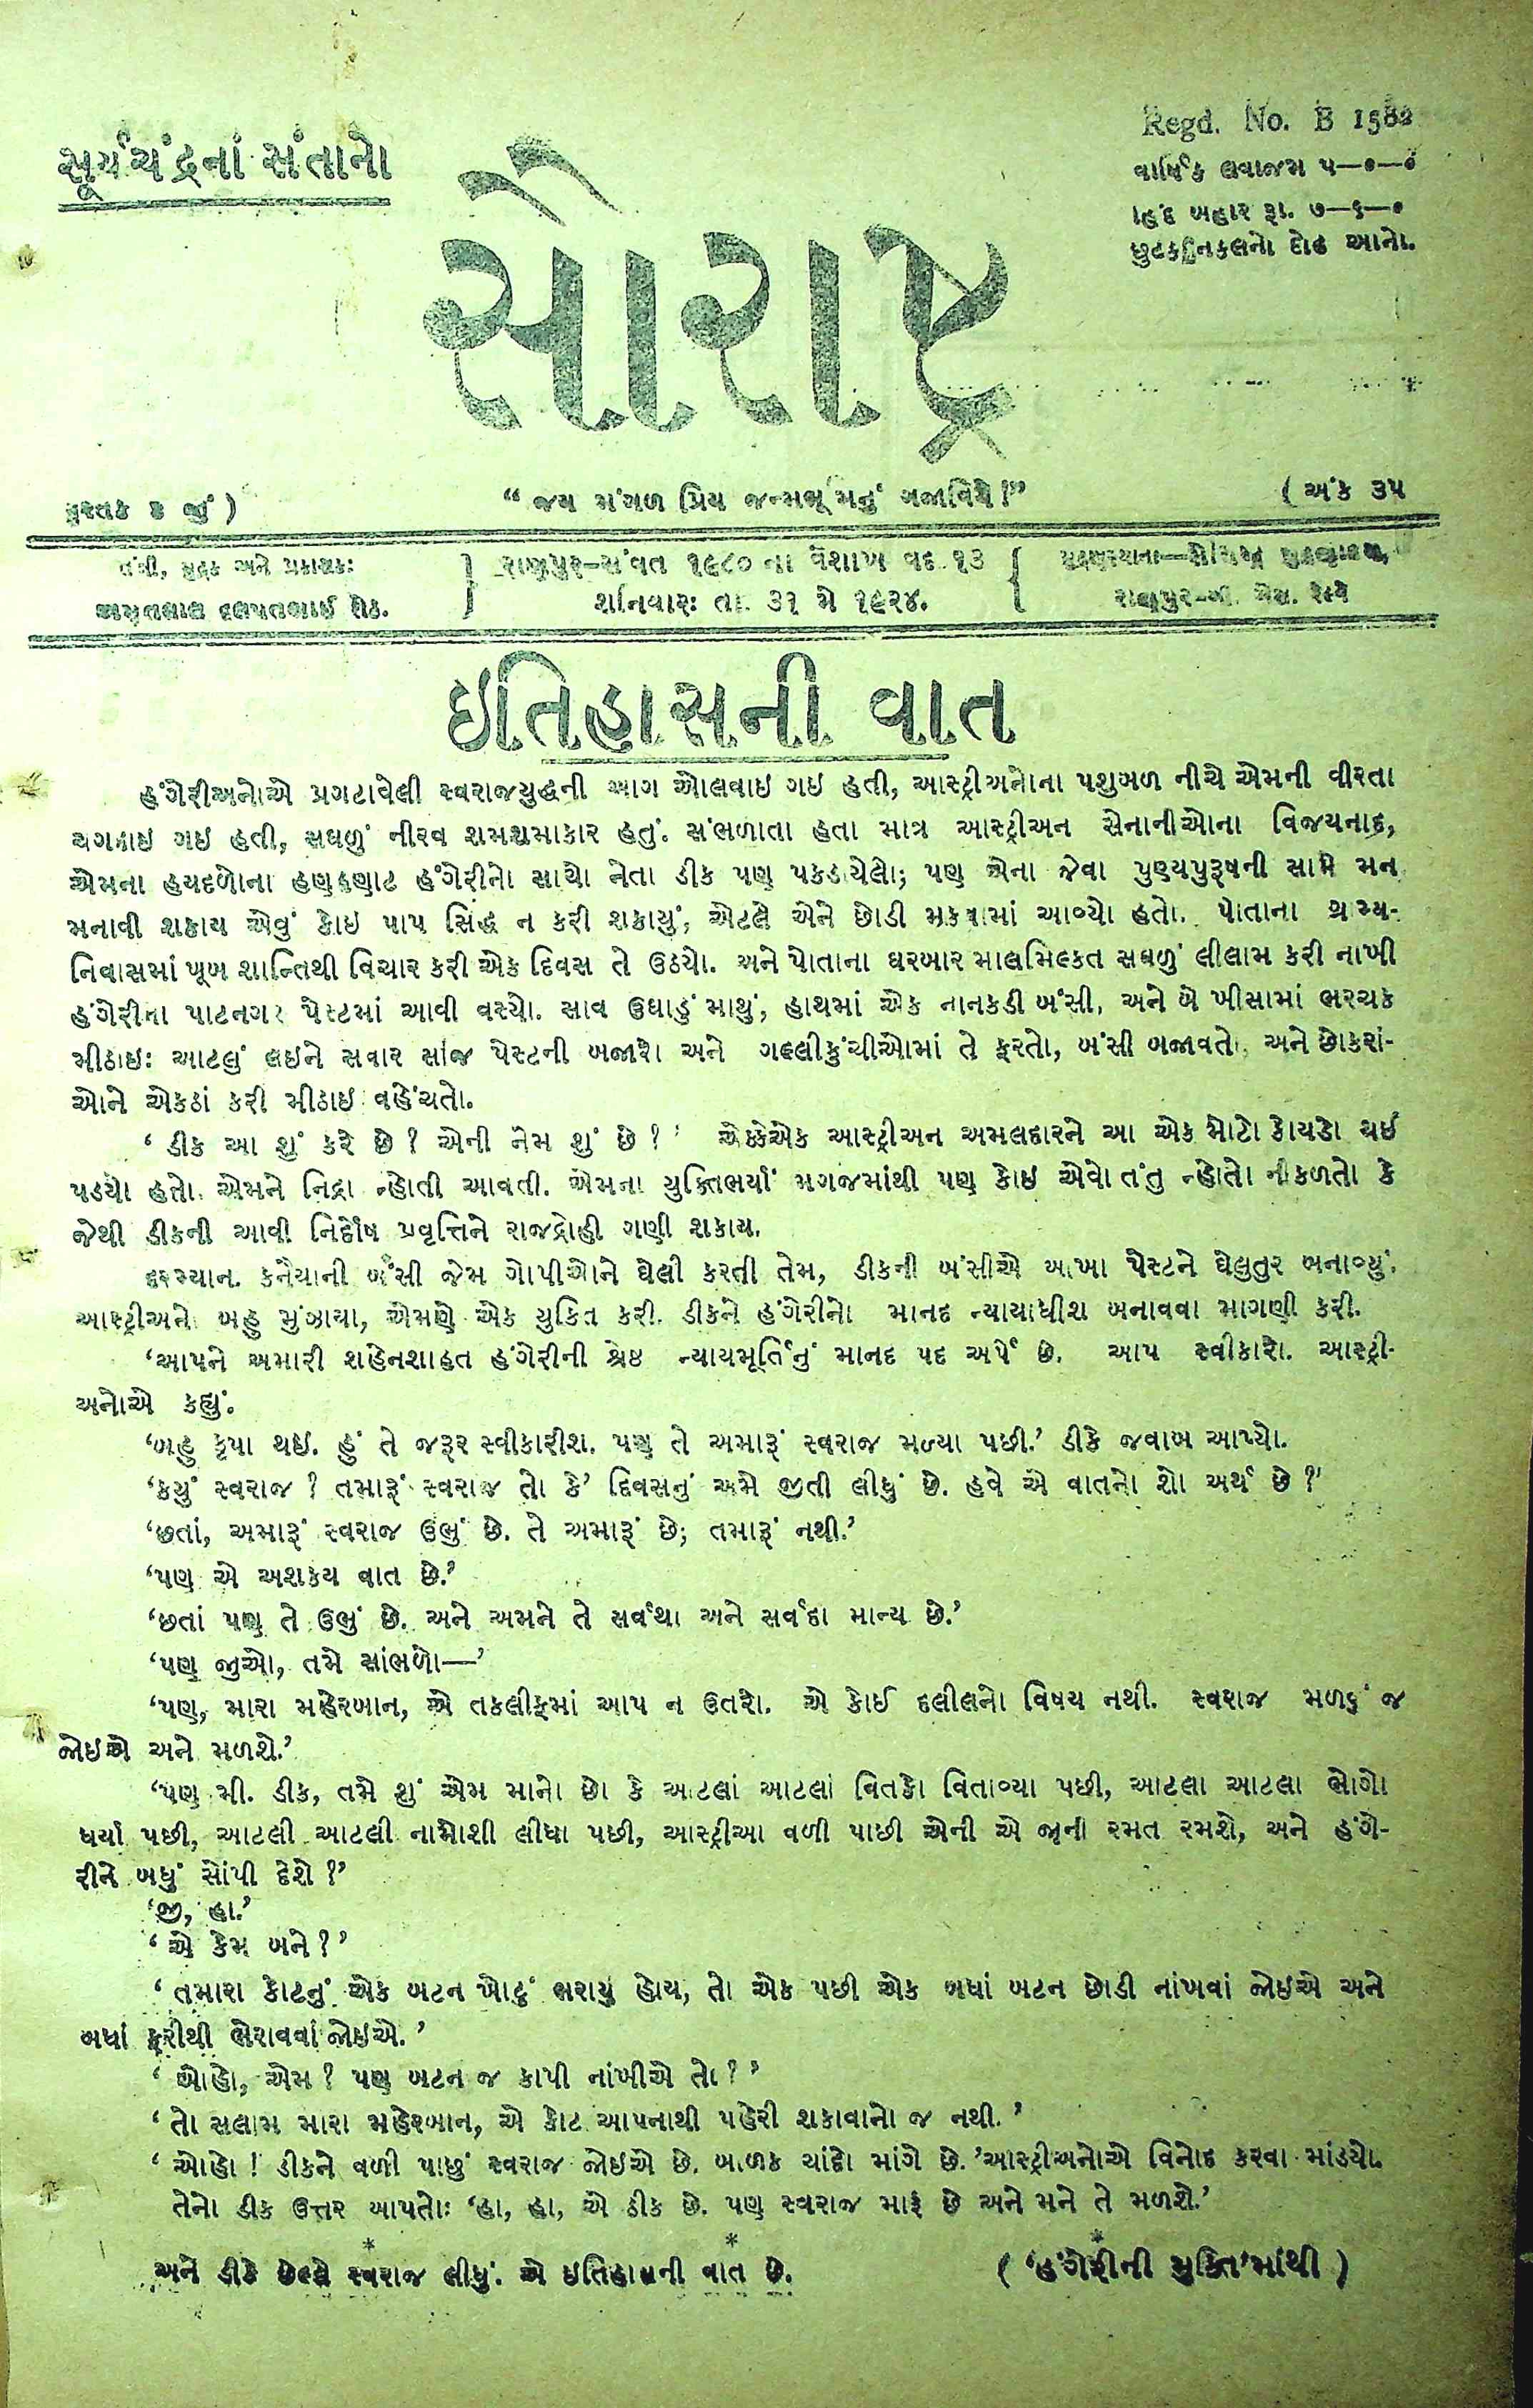 Regd. No. B 1582
સૂર્યચંદ્રનાં સંતાનો
વાર્ષિક લવાજમ ૫—૦—૦
હિંદ બહાર રૂા. ૭—૬—૦
છુટક નકલનો દોઢ આનો.
સૌરાષ્ટ્ર
પુસ્તક ૩ જું )
“ જય મંગળ પ્રિય જન્મભૂમિનું ગજાવિયે !”
( અંક ૩૫
તંત્રી, મુદ્રક અને પ્રકાશકઃ
અમૃતલાલ દલપતભાઈ શેઠ.
રાણપુર–સંવત ૧૯૮૦ ના વૈશાખ વદ ૧૩
શનિવારઃ તા. ૩૧ મે ૧૯૨૪.
મુદ્રણસ્થાન—સૌરાષ્ટ્ર મુદ્રણાલય,
રાણપુર–બી. એસ. રેલ્વે
ઇતિહાસની વાત
હંગેરીઅનોએ પ્રગટાવેલી સ્વરાજયુદ્ધની આગ ઓલવાઇ ગઇ હતી, આસ્ટ્રીઅનોના પશુબળ નીચે એમની વીરતા
ચગદાઇ ગઇ હતી, સઘળું નીરવ શમશમાકાર હતું. સંભળાતા હતા માત્ર આસ્ટ્રીઅન સેનાનીઓના વિજયનાદ,
એમના હયદળોના હણહણાટ હંગેરીનો સાચો નેતા ડીક પણ પકડાયેલો; પણ એના જેવા પુણ્યપુરૂષની સામે મન
મનાવી શકાય એવું કોઇ પાપ સિદ્ધ ન કરી શકાયું, એટલે એને છોડી મુકવામાં આવ્યો હતો. પોતાના ગ્રામ્ય-
નિવાસમાં ખૂબ શાન્તિથી વિચાર કરી એક દિવસ તે ઉઠયો. અને પોતાના ઘરબાર માલમિલ્કત સઘળું લીલામ કરી નાખી
હંગેરીના પાટનગર પેસ્ટમાં આવી વસ્યો. સાવ ઉઘાડું માથું, હાથમાં એક નાનકડી બંસી, અને બે ખીસામાં ભરચક
મીઠાઇઃ આટલું લઇને સવાર સાંજ પેસ્ટની બજારો અને ગલ્લીકુંચીઓમાં તે ફરતો, બંસી બજાવતો, અને છોકરાં-
ઓને એકઠાં કરી મીઠાઇ વહેંચતો.
‘ ડીક આ શું કરે છે ? એની નેમ શું છે ? ’ એકેએક આસ્ટ્રીઅન અમલદારને આ એક મોટો કોયડો થઈ
પડયો હતો. એમને નિદ્રા ન્હોતી આવતી. એમના યુક્તિભર્યા મગજમાંથી પણ કોઇ એવો તંતુ ન્હોતો નીકળતો કે
જેથી ડીકની આવી નિર્દોષ પ્રવૃત્તિને રાજદ્રોહી ગણી શકાય.
દરમ્યાન. કનૈયાની બંસી જેમ ગોપીઓને ઘેલી કરતી તેમ, ડીકની બંસીએ આખા પેસ્ટને ઘેલુતુર બનાવ્યું.
આસ્ટ્રીઅનો બહુ મુંઝાયા, એમણે એક યુકિત કરી. ડીકને હંગેરીનો માનદ ન્યાયાધીશ બનાવવા માગણી કરી.
‘આપને અમારી શહેનશાહત હંગેરીની શ્રેષ્ઠ ન્યાયમૂર્તિનું માનદ પદ અર્પે છે. આપ સ્વીકારો. આસ્ટ્રી-
અનોએ કહ્યું.
‘બહુ કૃપા થઇ. હું તે જરૂર સ્વીકારીશ. પણ તે અમારૂં સ્વરાજ મળ્યા પછી.’ ડીકે જવાબ આપ્યો.
‘કયું સ્વરાજ ? તમારૂં સ્વરાજ તો કે’ દિવસનું અમે જીતી લીધું છે. હવે એ વાતનો શો અર્થ છે ?’
‘છતાં, અમારૂં સ્વરાજ ઉભું છે. તે અમારૂં છે; તમારૂં નથી.’
‘પણ એ અશકય વાત છે.’
‘છતાં પણ તે ઉભું છે. અને અમને તે સર્વથા અને સર્વદા માન્ય છે.’
‘પણ જુઓ, તમે સાંભળો—’
‘પણ, મારા મહેરબાન, એ તકલીફમાં આપ ન ઉતરો. એ કોઈ દલીલનો વિષય નથી. સ્વરાજ મળવું જ
જોઇએ અને મળશે.’
‘પણ મી. ડીક, તમે શું એમ માનો છો કે આટલાં આટલાં વિતકો વિતાવ્યા પછી, આટલા આટલા ભોગો
ધર્યા પછી, આટલી આટલી નામોશી લીધા પછી, આસ્ટ્રીઆ વળી પાછી એની એ જૂની રમત રમશે, અને હંગે-
રીને બધું સોંપી દેશે ?’
‘જી, હા.’
‘ એ કેમ બને ? ’
‘ તમારા કોટનું એક બટન ખોટું ભરાયુ હોય, તો એક પછી એક બધાં બટન છોડી નાંખવાં જોઇએ અને
બધાં ફરીથી ભેરાવવાં જોઇએ. ’
‘ ઓહો, એમ ? પણ બટન જ કાપી નાંખીએ તો ? ’
‘ તો સલામ મારા મહેરબાન, એ કોટ આપનાથી પહેરી શકાવાનો જ નથી. ’
‘ ઓહો ! ડીકને વળી પાછું સ્વરાજ જોઇએ છે. બાળક ચાંદો માંગે છે. ’આસ્ટ્રીઅનોએ વિનોદ કરવા માંડયો.
તેનો ડીક ઉત્તર આપતોઃ ‘હા, હા, એ ઠીક છે. પણ સ્વરાજ મારૂં છે અને મને તે મળશે.’
* * *
અને ડીકે છેલ્લે સ્વરાજ લીધું. એ ઇતિહાસની વાત છે. ( ‘હંગેરીની મુક્તિ’માંથી )